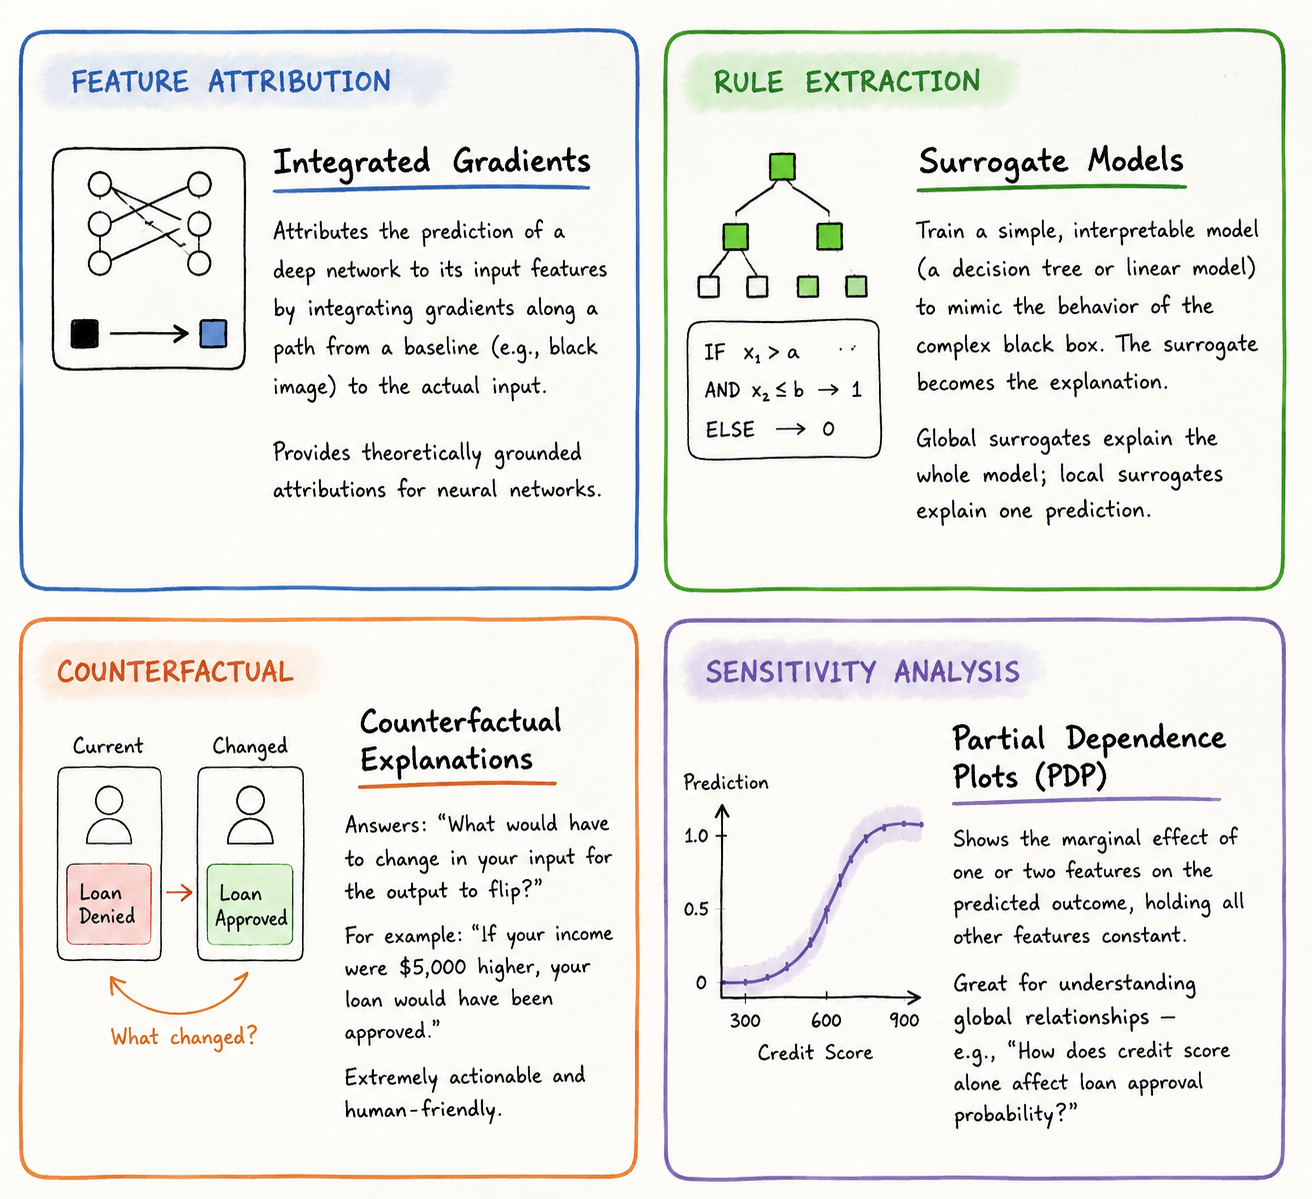 FEATURE ATTRIBUTION
Integrated Gradients
Attributes the prediction of a
deep network to its input features
by integrating gradients along a
path from a baseline (e.g., black
image) to the actual input.
Provides theoretically grounded
attributions for neural networks.
RULE EXTRACTION
IF x₁ > a ..
AND x₂ ≤ b → 1
ELSE → 0
Surrogate Models
Train a simple, interpretable model
(a decision tree or linear model)
to mimic the behavior of the
complex black box. The surrogate
becomes the explanation.
Global surrogates explain the
whole model; local surrogates
explain one prediction.
COUNTERFACTUAL
Current
Changed
Loan
Denied
Loan
Approved
What changed?
Counterfactual
Explanations
Answers: “What would have
to change in your input for
the output to flip?”
For example: “If your income
were $5,000 higher, your
loan would have been
approved.”
Extremely actionable and
human-friendly.
SENSITIVITY ANALYSIS
Prediction
1.0
0.5
0
300 600 900
Credit Score
Partial Dependence
Plots (PDP)
Shows the marginal effect of
one or two features on the
predicted outcome, holding all
other features constant.
Great for understanding
global relationships —
e.g., “How does credit score
alone affect loan approval
probability?”